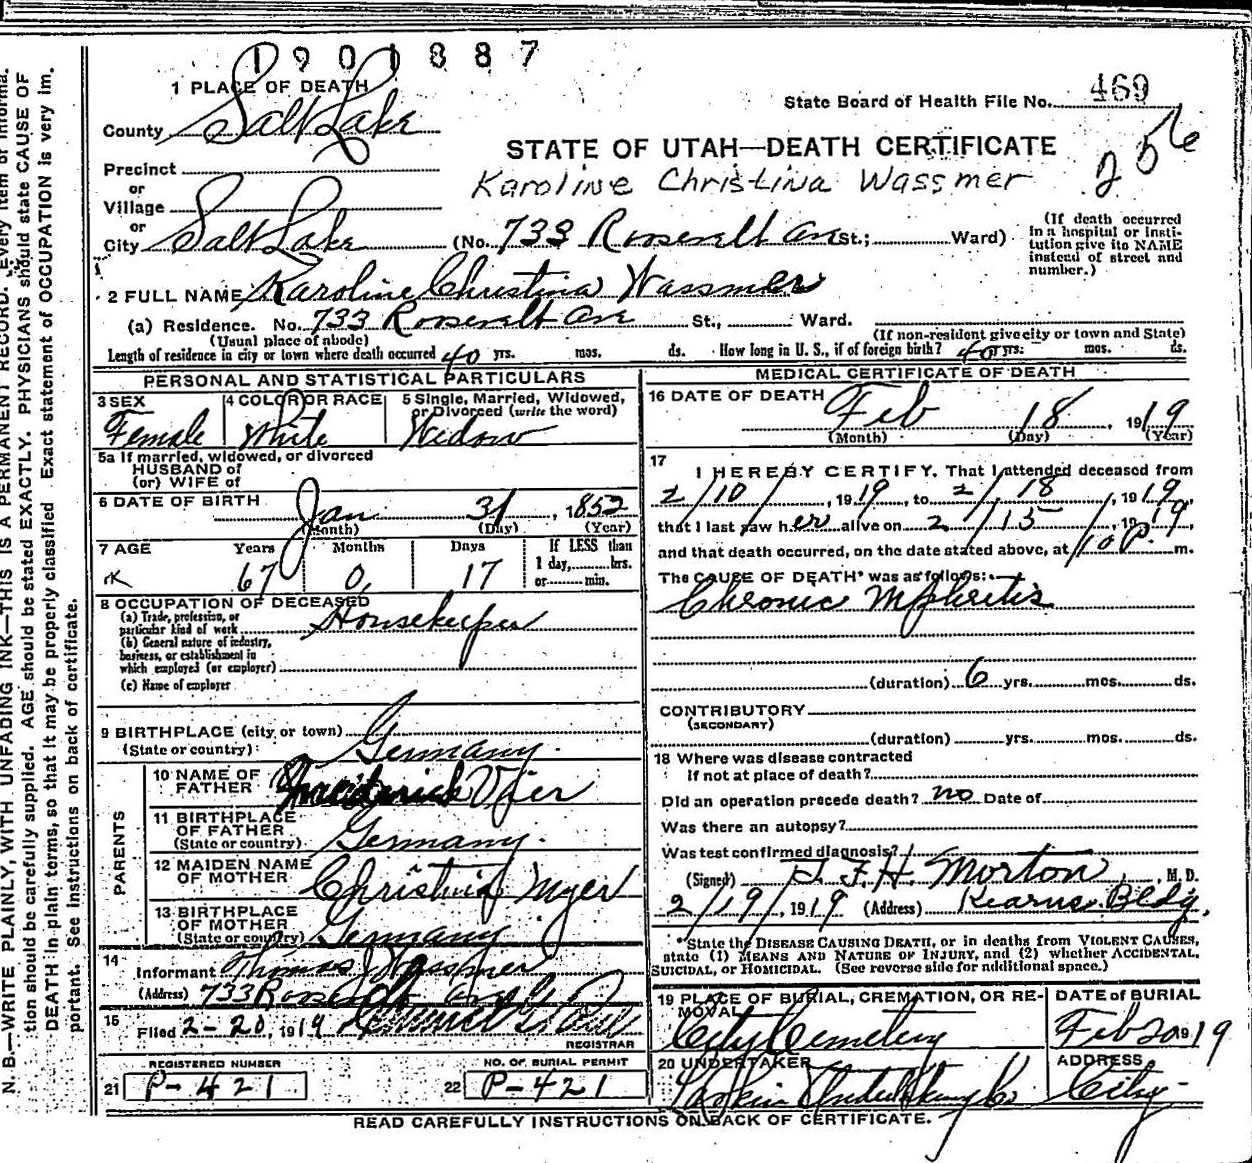 1901887
1 PLACE OF DEATH
County Salt Lake
State Board of Health File No. 469
256
STATE OF UTAH—DEATH CERTIFICATE
Karoline Christina Wassmer
Precinct
or
Village
or
City Salt Lake (No. 733 Roosevelt Ave St.; Ward)
(If death occurred
in a hospital or insti-
tution give its NAME
instead of street and
number.)
2 FULL NAME Karoline Christina Wassmer
(a) Residence. No. 733 Roosevelt Ave St., Ward.
(Usual place of abode) (If non-resident give city or town and State)
Length of residence in city or town where death occurred 40 yrs. mos. ds. How long in U. S., if of foreign birth? 40 yrs. mos. ds.
PERSONAL AND STATISTICAL PARTICULARS
3 SEX 4 COLOR OR RACE 5 Single, Married, Widowed,
or Divorced (write the word)
Female White Widow
5a If married, widowed, or divorced
HUSBAND of
(or) WIFE of
6 DATE OF BIRTH Jan 31, 1852
(Month) (Day) (Year)
7 AGE Years Months Days If LESS than
1 day, hrs.
or min.
67 0, 17
8 OCCUPATION OF DECEASED
(a) Trade, profession, or
particular kind of work Housekeeper
(b) General nature of industry,
business, or establishment in
which employed (or employer)
(c) Name of employer
9 BIRTHPLACE (city or town)
(State or country) Germany.
PARENTS
10 NAME OF
FATHER Frederick
11 BIRTHPLACE
OF FATHER
(State or country) Germany.
12 MAIDEN NAME
OF MOTHER Christina Myer
13 BIRTHPLACE
OF MOTHER
(State or country) Germany
14
Informant Thomas Wassmer
(Address) 733 Roosevelt Ave
15
Filed 2-20, 1919
REGISTRAR
REGISTERED NUMBER NO. OF BURIAL PERMIT
21 P-421 22 P-421
MEDICAL CERTIFICATE OF DEATH
16 DATE OF DEATH Feb 18, 1919
(Month) (Day) (Year)
17
I HEREBY CERTIFY, That I attended deceased from
2/10/, 1919, to 2/18/, 1919,
that I last saw her alive on 2/15/, 1919,
and that death occurred, on the date stated above, at 10 P. m.
The CAUSE OF DEATH* was as follows:
Chronic Nephritis
(duration) 6 yrs. mos. ds.
CONTRIBUTORY
(SECONDARY)
(duration) yrs. mos. ds.
18 Where was disease contracted
if not at place of death?
Did an operation precede death? no Date of
Was there an autopsy?
Was test confirmed diagnosis?
(Signed) F. H. Morton, M. D.
2/19/, 1919 (Address) Kearns Bldg.
*State the DISEASE CAUSING DEATH, or in deaths from VIOLENT CAUSES,
state (1) MEANS AND NATURE OF INJURY, and (2) whether ACCIDENTAL,
SUICIDAL, or HOMICIDAL. (See reverse side for additional space.)
19 PLACE OF BURIAL, CREMATION, OR RE-
MOVAL
DATE of BURIAL
City Cemetery Feb 20 1919
20 UNDERTAKER ADDRESS
Larkin Undertaking Co City
READ CAREFULLY INSTRUCTIONS ON BACK OF CERTIFICATE.
N. B.—WRITE PLAINLY, WITH UNFADING INK—THIS IS A PERMANENT RECORD. Every item of informa-
tion should be carefully supplied. AGE should be stated EXACTLY. PHYSICIANS should state CAUSE OF
DEATH in plain terms, so that it may be properly classified. Exact statement of OCCUPATION is very im-
portant. See instructions on back of certificate.